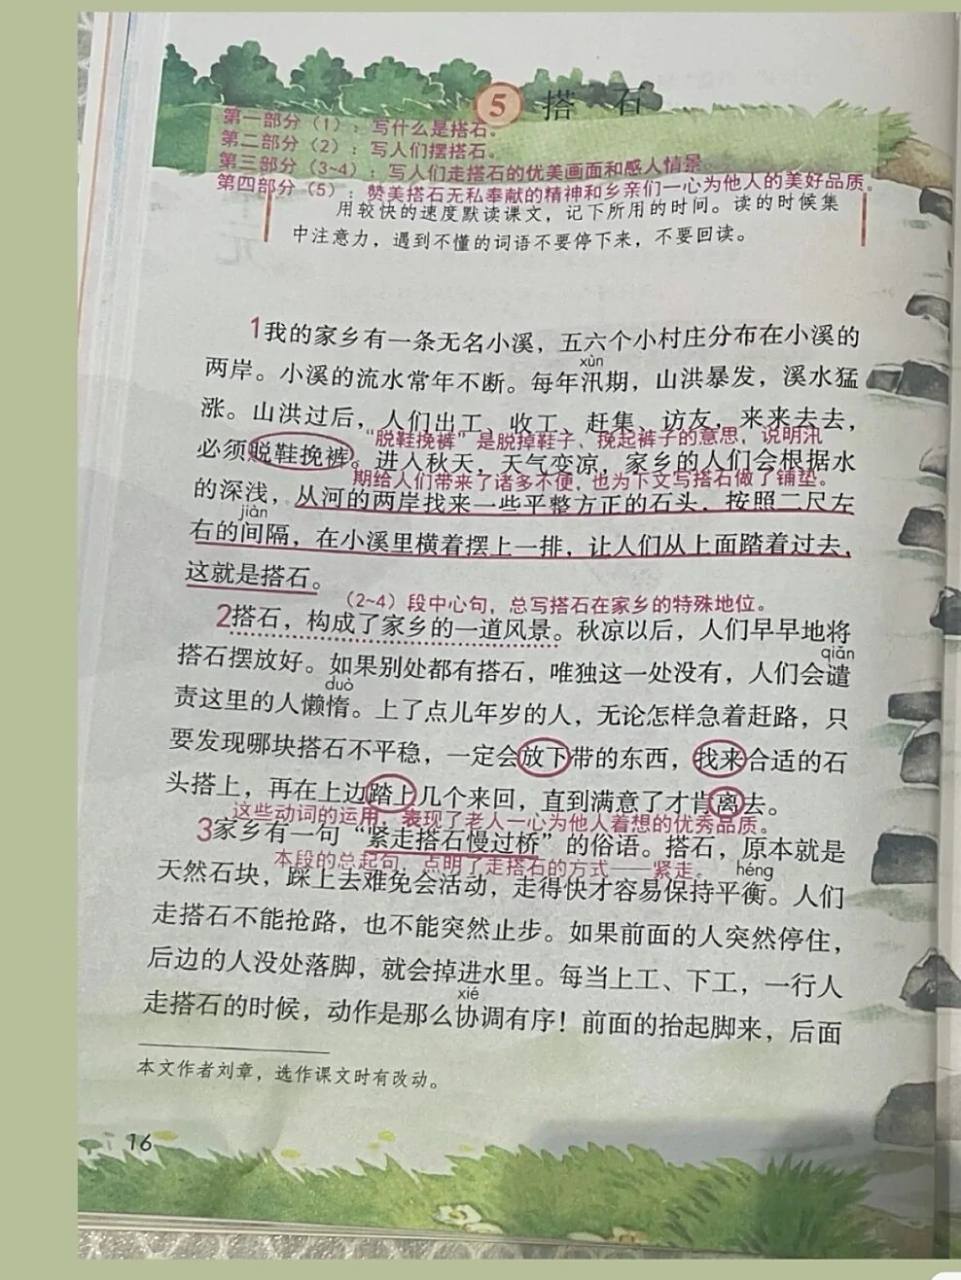 5 搭 石
第一部分（1）：写什么是搭石。
第二部分（2）：写人们摆搭石。
第三部分（3~4）：写人们走搭石的优美画面和感人情景
第四部分（5）：赞美搭石无私奉献的精神和乡亲们一心为他人的美好品质。
用较快的速度默读课文，记下所用的时间。读的时候集
中注意力，遇到不懂的词语不要停下来，不要回读。
1我的家乡有一条无名小溪，五六个小村庄分布在小溪的
xùn
两岸。小溪的流水常年不断。每年汛期，山洪暴发，溪水猛
涨。山洪过后，人们出工、收工、赶集、访友，来来去去，
“脱鞋挽裤”是脱掉鞋子、挽起裤子的意思，说明汛
必须脱鞋挽裤。进入秋天，天气变凉，家乡的人们会根据水
期给人们带来了诸多不便，也为下文写搭石做了铺垫。
的深浅，从河的两岸找来一些平整方正的石头，按照二尺左
jiàn
右的间隔，在小溪里横着摆上一排，让人们从上面踏着过去，
这就是搭石。
（2~4）段中心句，总写搭石在家乡的特殊地位。
2搭石，构成了家乡的一道风景。秋凉以后，人们早早地将
qiǎn
搭石摆放好。如果别处都有搭石，唯独这一处没有，人们会谴
duò
责这里的人懒惰。上了点儿年岁的人，无论怎样急着赶路，只
要发现哪块搭石不平稳，一定会放下带的东西，找来合适的石
头搭上，再在上边踏上几个来回，直到满意了才肯离去。
这些动词的运用，表现了老人一心为他人着想的优秀品质。
3家乡有一句“紧走搭石慢过桥”的俗语。搭石，原本就是
本段的总起句，点明了走搭石的方式——紧走。
héng
天然石块，踩上去难免会活动，走得快才容易保持平衡。人们
走搭石不能抢路，也不能突然止步。如果前面的人突然停住，
后边的人没处落脚，就会掉进水里。每当上工、下工，一行人
xié
走搭石的时候，动作是那么协调有序！前面的抬起脚来，后面
本文作者刘章，选作课文时有改动。
16